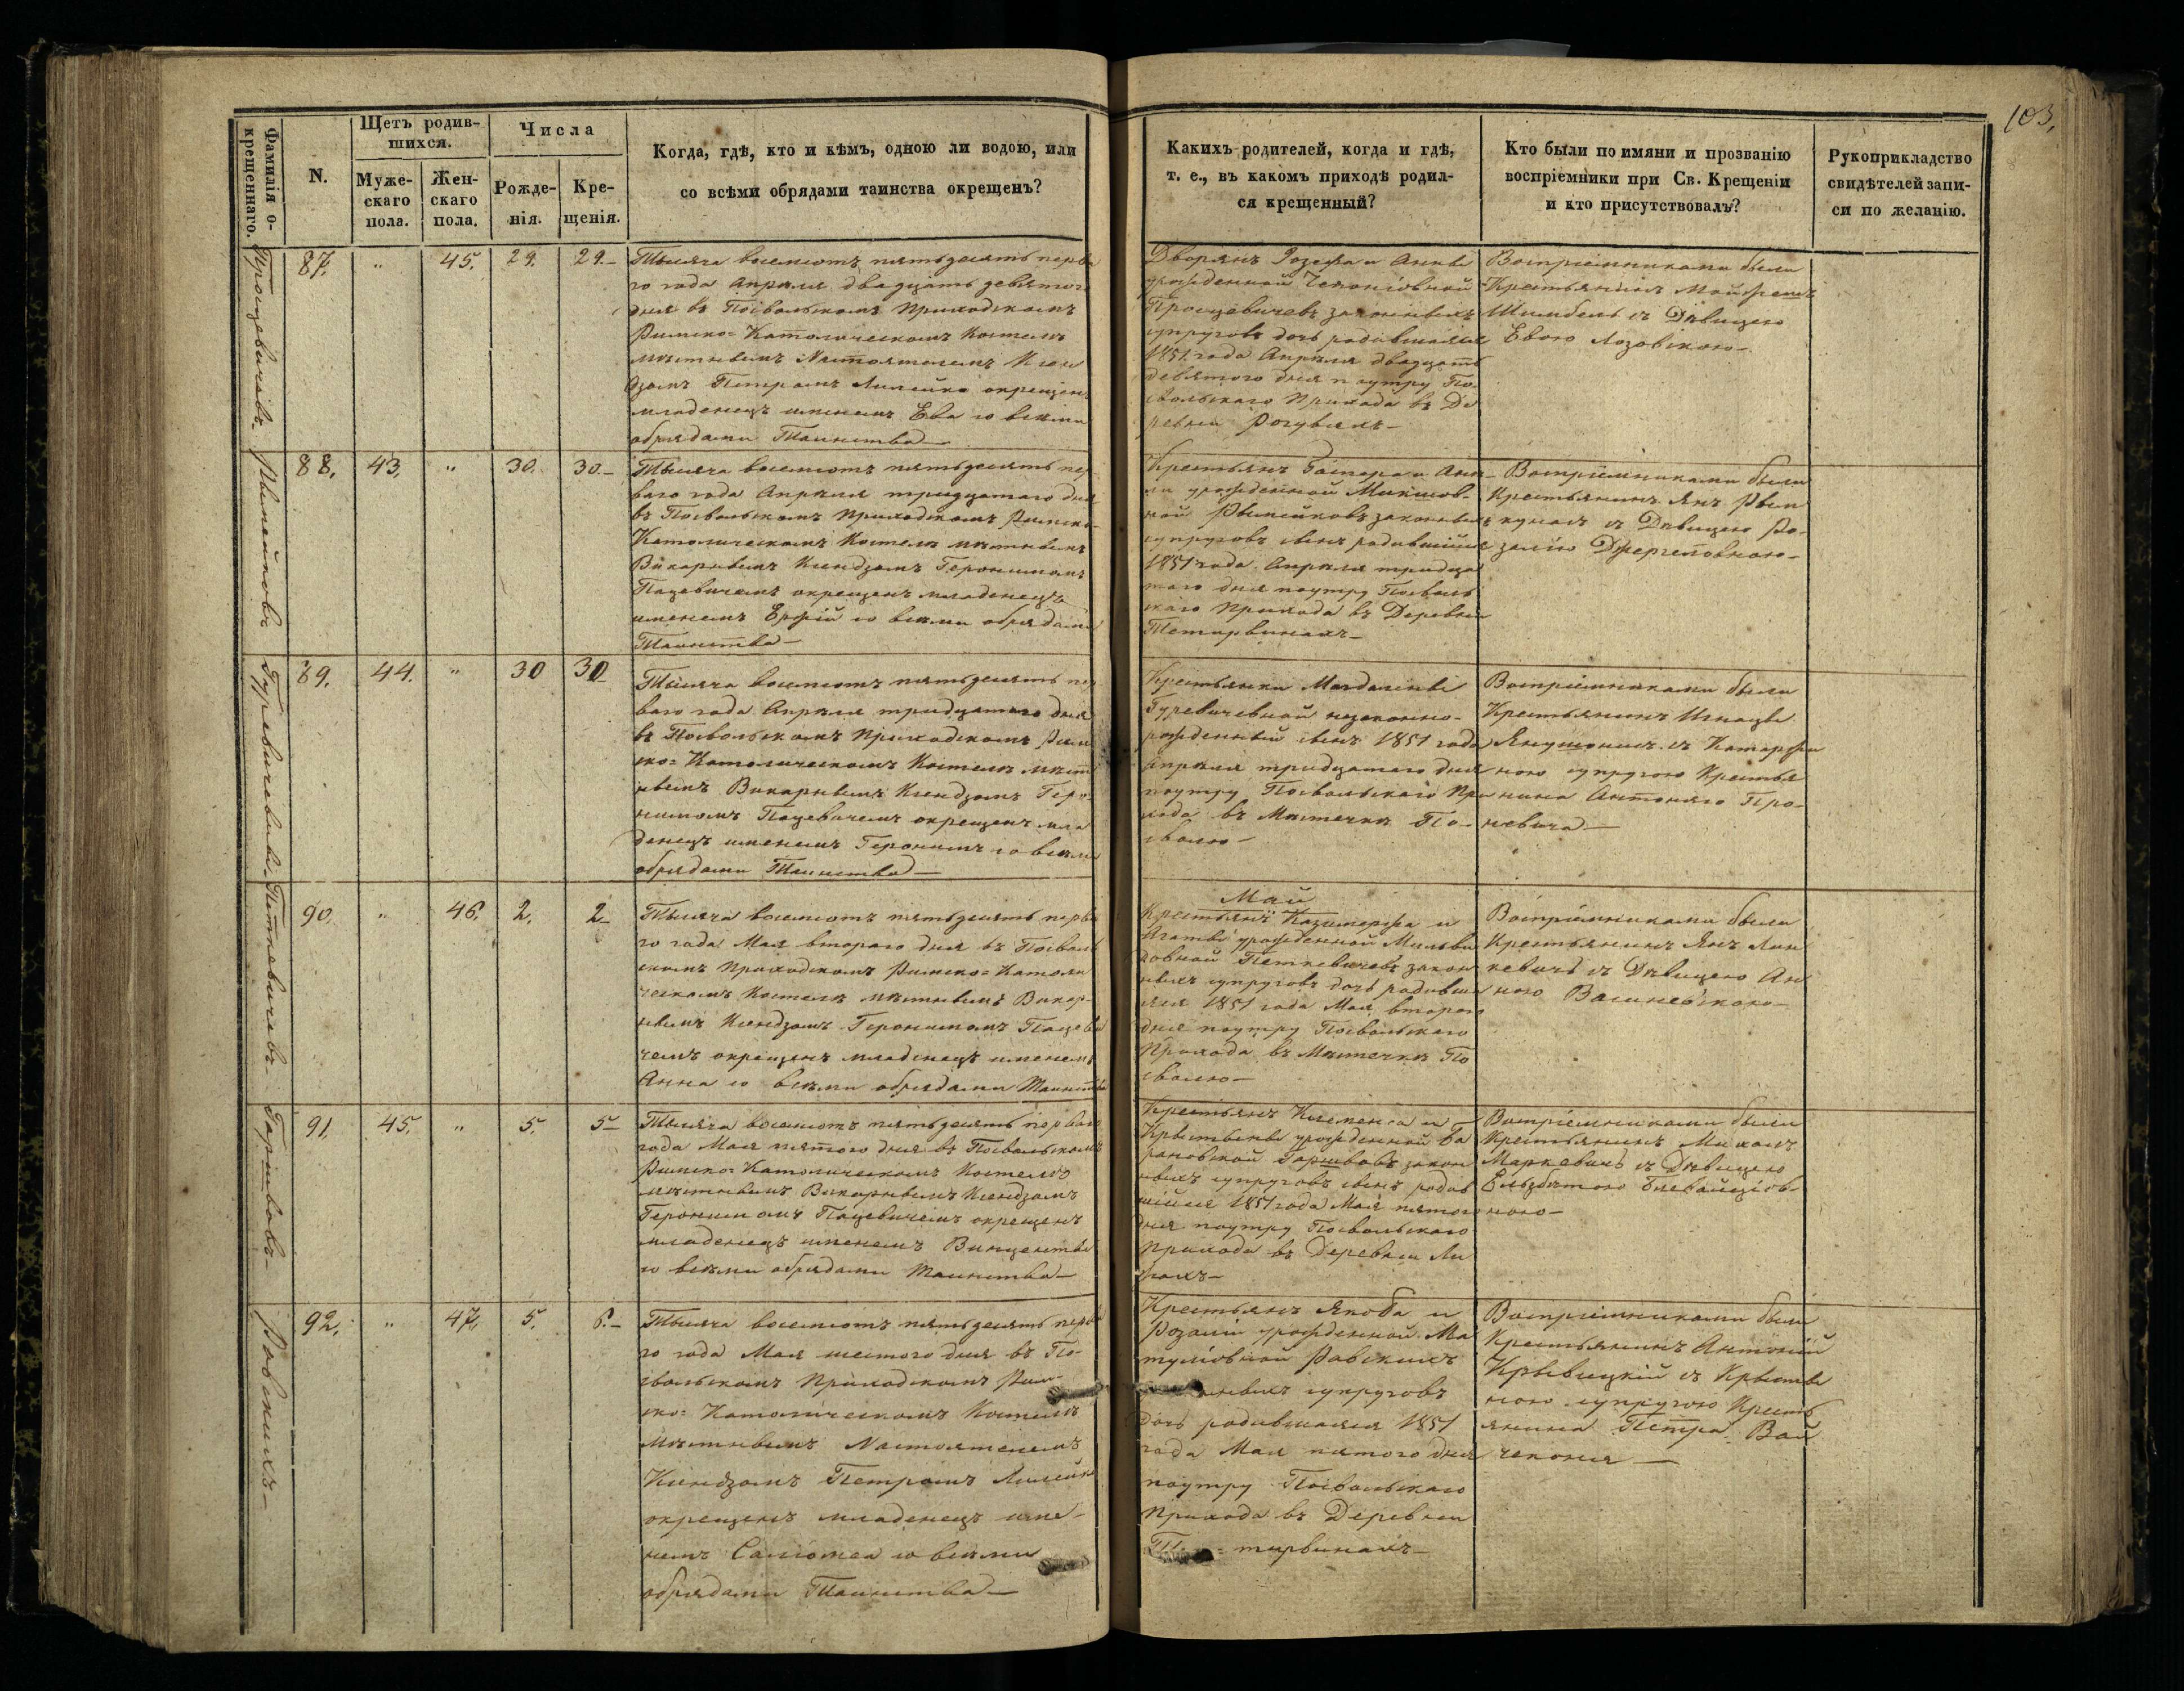 103.
Фамилія о-
крещеннаго.
N.
Щетъ родив-
шихся.
Муже-
скаго
пола.
Жен-
скаго
пола.
Числа
Рожде-
нія.
Кре-
щенія.
Когда, гдѣ, кто и кѣмъ, одною ли водою, или
со всѣми обрядами таинства окрещенъ?
Какихъ родителей, когда и гдѣ,
т. е., въ какомъ приходѣ родил-
ся крещенный?
Кто были по имяни и прозванію
воспріемники при Св. Крещеніи
и кто присутствовалъ?
Рукоприкладство
свидѣтелей запи-
си по желанію.
Процевичевъ
87. " 45. 29. 29.
Тысяча восемсотъ пятьдесятъ перва
го года Апрѣля двадцать девятого
дня въ Посвольскомъ Приходскомъ
Римско=Католическомъ Костелѣ
мѣстнымъ Настоятелемъ Ксен
дзомъ Петромъ Лилейко окрещенъ
младенецъ именемъ Ева со всѣми
обрядами Таинства
Дворянъ Іозефа и Анны
урожденной
Процевичевъ законныхъ
супруговъ дочь родившаяся
1851 года Апрѣля двадцать
девятого дня поутру По-
свольскаго Прихода въ Де
ревни Рогувкахъ
Воспріемниками были
Крестьянинъ
съ Дѣвицею
Евою Лозовскою
Рымейковъ
88. 43. " 30. 30.
Тысяча восемсотъ пятьдесятъ пер
ваго года Апрѣля тридцатаго дня
въ Посвольскомъ Приходскомъ Римско-
Католическомъ Костелѣ мѣстнымъ
Викарнымъ Ксендзомъ Геронимомъ
Пацевичемъ окрещенъ младенецъ
именемъ Ержій со всѣми обрядами
Таинства
Крестьянъ Гаспера и Анн-
ы урожденной Микшов-
ной Рымейковъ законныхъ
супруговъ сынъ родившійся
1851 года Апрѣля тридца
таго дня поутру Посволь
скаго Прихода въ Деревни
Тетирвинахъ
Воспріемниками были
Крестьянинъ Янъ Рым
кунасъ съ Дѣвицею Ро-
заліею
Гуревичевны
89. 44. " 30 30
Тысяча восемсотъ пятьдесятъ пер
ваго года Апрѣля тридцатаго дня
въ Посвольскомъ Приходскомъ Рим
ско=Католическомъ Костелѣ мѣст
нымъ Викарнымъ Ксендзомъ Геро-
нимомъ Пацевичемъ окрещенъ мла
денецъ именемъ Геронимъ со всѣми
обрядами Таинства
Крестьянки Магдалены
Гуревичевной незаконно-
рожденный сынъ 1851 года
Апрѣля тридцатаго дня
поутру Посвольскаго При
хода въ Мѣстечкѣ По-
сволю
Воспріемниками были
Крестьянинъ Игнацы
Янушонисъ съ Катаржи
ною супругою Крестья
нина Антонаго Про-
невича
Петкевичевъ
90. " 46. 2. 2.
Тысяча восемсотъ пятьдесятъ перва
го года Мая втораго дня въ Посволь
скомъ Приходскомъ Римско=Католи
ческомъ Костелѣ мѣстнымъ Викар-
нымъ Ксендзомъ Геронимомъ Пацеви
чемъ окрещенъ младенецъ именемъ
Анна со всѣми обрядами Таинства
Май
Крестьянъ Казимержа и
Агаты урожденной Мильви
довной Петкевичевъ закон
ныхъ супруговъ дочь родивша
яся 1851 года Мая втораго
дня поутру Посвольскаго
Прихода въ Мѣстечкѣ По
сволю
Воспріемниками были
Крестьянинъ Янъ Лин
кевичъ съ Дѣвицею Ан
ною Василевскою
Гаршвовъ
91. 45. " 5. 5
Тысяча восемсотъ пятьдесятъ перваго
года Мая пятого дня въ Посвольскомъ
Римско=Католическомъ Костелѣ
мѣстнымъ Викарнымъ Ксендзомъ
Геронимомъ Пацевичемъ окрещенъ
младенецъ именемъ Винценты
со всѣми обрядами Таинства
Крестьянъ Клеменса и
Крыстыны урожденной Ба
рановской Гаршвовъ закон
ныхъ супруговъ сынъ родив
шійся 1851 года Мая пятого
дня поутру Посвольскаго
Прихода въ Деревни
Воспріемниками были
Крестьянинъ Михалъ
Маркевичъ съ Дѣвицею
Ельзбѣтою
ною
Равскихъ
92. " 47. 5. 6.
Тысяча восемсотъ пятьдесятъ перва
го года Мая шестого дня въ По-
свольскомъ Приходскомъ Рим-
ско=Католическомъ Костелѣ
мѣстнымъ Настоятелемъ
Ксендзомъ Петромъ Лилейко
окрещенъ младенецъ име-
немъ Саломея со всѣми
обрядами Таинства
Крестьянъ Якоба и
Розаліи урожденной Ма
тулiовной Равскихъ
супруговъ
дочь родившаяся 1851
года Мая пятого дня
поутру Посвольскаго
Прихода въ Деревни
тирвинахъ
Воспріемниками были
Крестьянинъ Антоній
Крывицкій съ Крысты
ною супругою Кресть
янина Петра Вай
чекониса